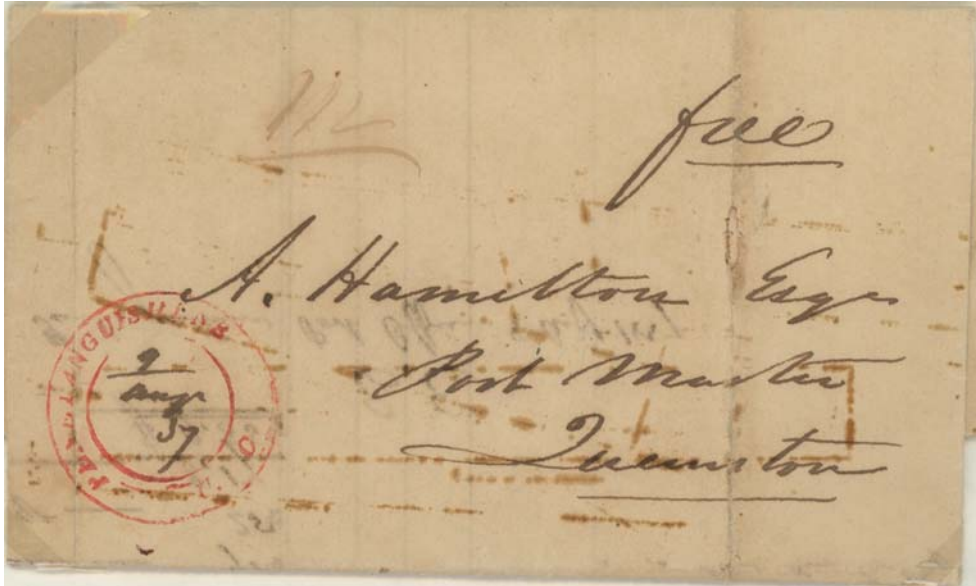 free
A. Hamilton Esqr
Post Master
Queenston
PENETANGUISHENE
U. C.
9
Augt
37